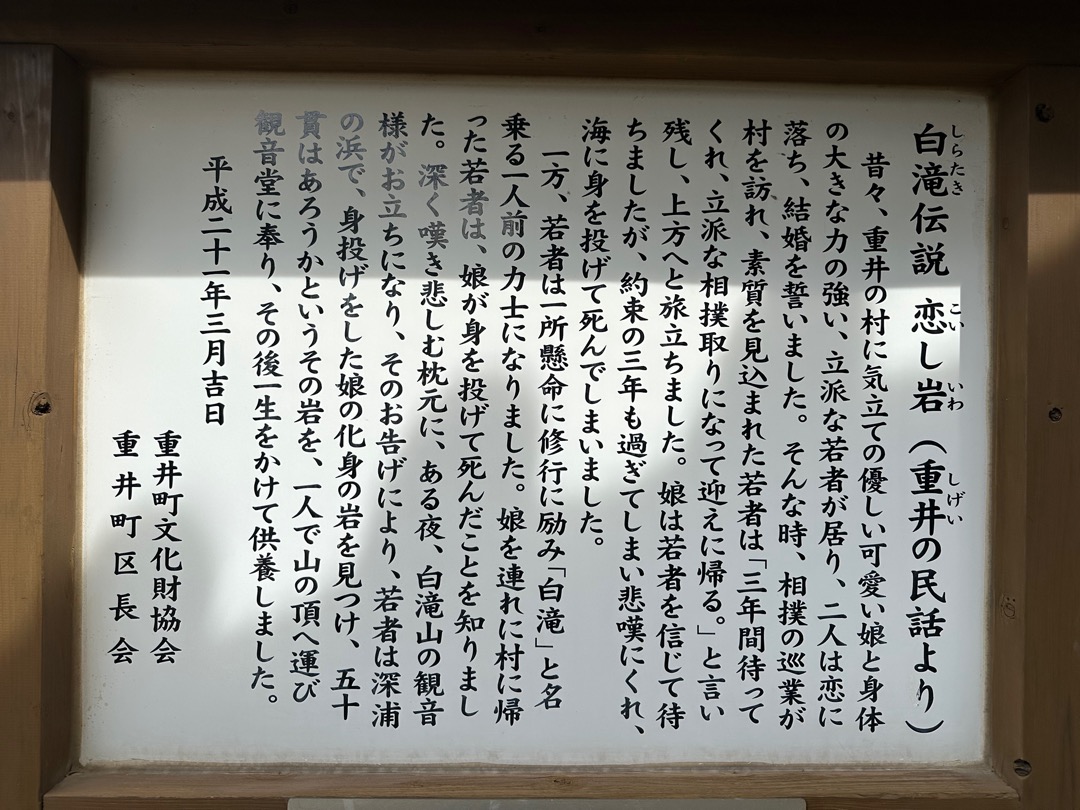 白滝伝説 恋し岩（重井の民話より）
昔々、重井の村に気立ての優しい可愛い娘と身体
の大きな力の強い、立派な若者が居り、二人は恋に
落ち、結婚を誓いました。そんな時、相撲の巡業が
村を訪れ、素質を見込まれた若者は「三年間待って
くれ、立派な相撲取りになって迎えに帰る。」と言い
残し、上方へと旅立ちました。娘は若者を信じて待
ちましたが、約束の三年も過ぎてしまい悲嘆にくれ、
海に身を投げて死んでしまいました。
一方、若者は一所懸命に修行に励み「白滝」と名
乗る一人前の力士になりました。娘を連れに村に帰
った若者は、娘が身を投げて死んだことを知りまし
た。深く嘆き悲しむ枕元に、ある夜、白滝山の観音
様がお立ちになり、そのお告げにより、若者は深浦
の浜で、身投げをした娘の化身の岩を見つけ、五十
貫はあろうかというその岩を、一人で山の頂へ運び
観音堂に奉り、その後一生をかけて供養しました。
平成二十一年三月吉日
重井町文化財協会
重井町区長会